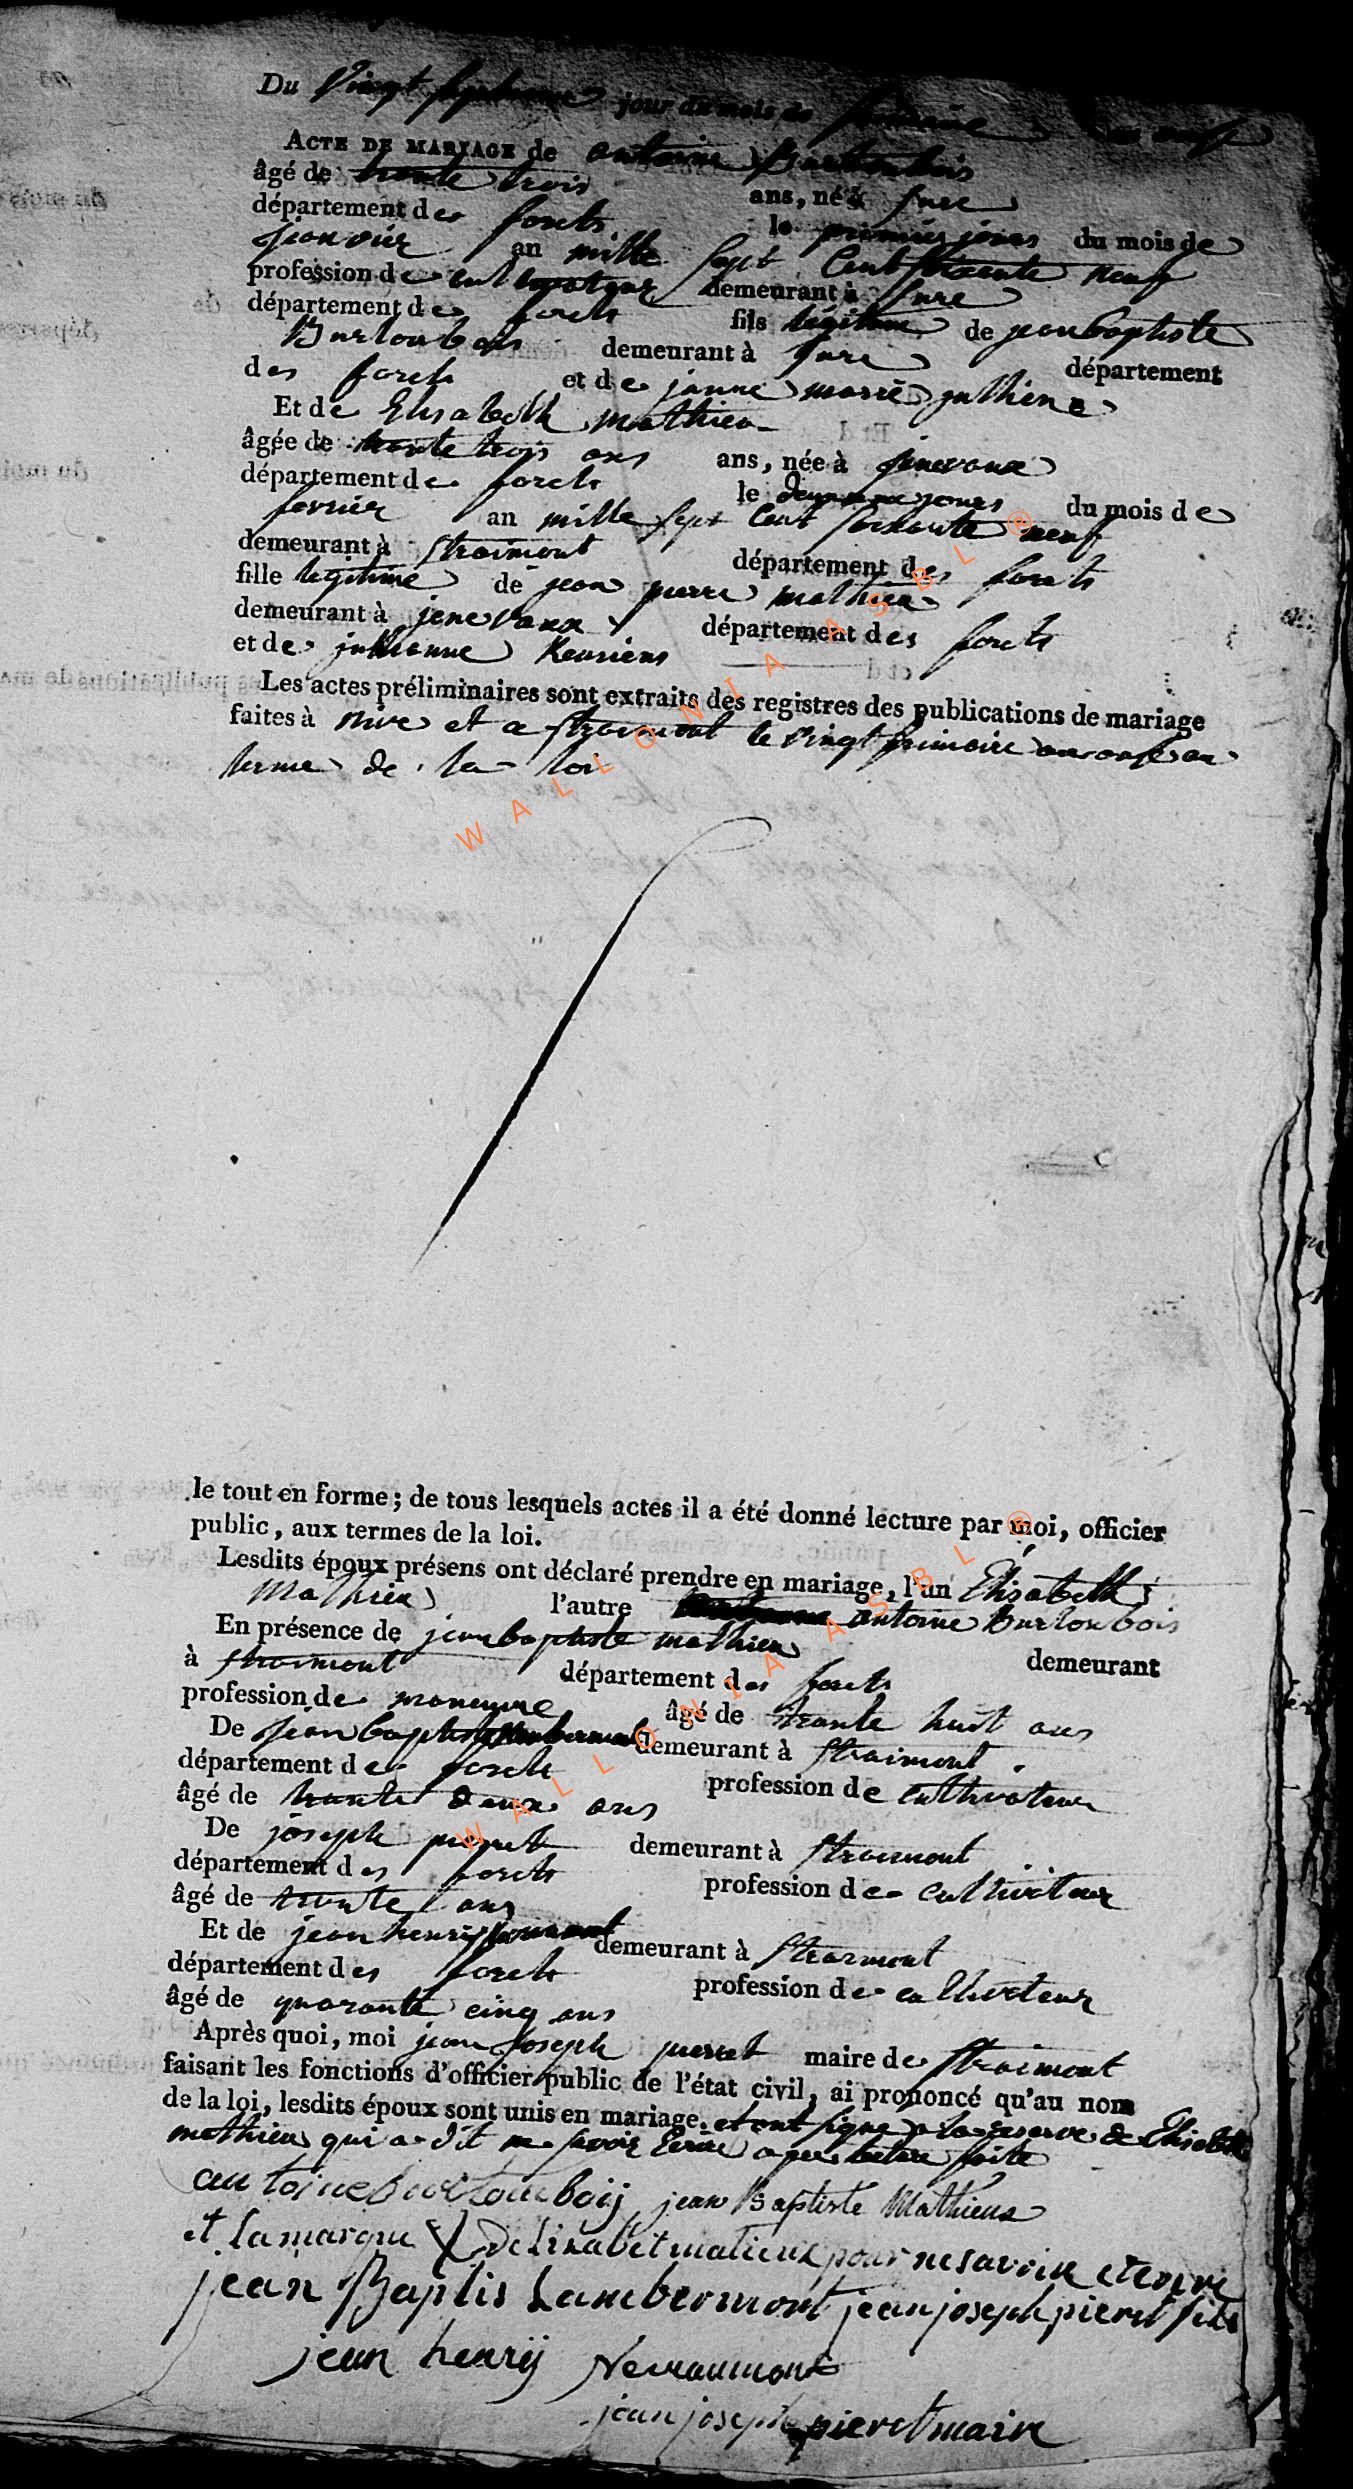 Du Vingt jour du mois de
ACTE DE MARIAGE de antoine Burtonbois
âgé de trante trois ans, né à Sure
département des forets le premier jours du mois de
Jeanvier an mille Sept Cent Soixante neuf
profession de cultivateur demeurant à Sure
département des forets fils légitime de jean baptiste
Burtonbois demeurant à Sure département
des forets et de janne marie
Et de Elisabeth mathieu
âgée de trante trois ans ans, née à jenevaux
département des forets le jours du mois de
fevrier an mille Sept Cent Soixante neuf
demeurant à Straimont département des forets
fille legitime de jean pierre mathieu
demeurant à jenevaux département des forets
et de julienne
Les actes préliminaires sont extraits des registres des publications de mariage
faites à et a Straimont le vingt frimaire an
terme de la loi
le tout en forme ; de tous lesquels actes il a été donné lecture par moi, officier
public, aux termes de la loi.
Lesdits époux présens ont déclaré prendre en mariage, l'un Elisabeth
Mathieu l'autre antoine Burtonbois
En présence de jean baptiste mathieu demeurant
à Straimont département des forets
profession de maneuvre âgé de trante huit ans
De Jean baptiste Lambermont demeurant à Straimont
département des forets profession de cultivateur
âgé de trante deux ans
De joseph pierret demeurant à Straimont
département des forets profession de cultivateur
âgé de trante ans
Et de jean henri demeurant à Straimont
département des forets profession de cultivateur
âgé de quarante cinq ans
Après quoi, moi jean Joseph pierret maire de Straimont
faisant les fonctions d'officier public de l'état civil, ai prononcé qu'au nom
de la loi, lesdits époux sont unis en mariage. et ont signé a la reserve de Elisabeth
mathieu qui a dit ne savoir Ecrire apres lecture faite
antoine burtonboij jean Baptiste Mathieu
et la marque delisabet matieux pour ne savoir
jean Baptis Lambermont jean joseph pieret fils
jean henrij Nevraumont
jean joseph pieret maire
WALLONIA ASBL ®
WALLONIA ASBL ®